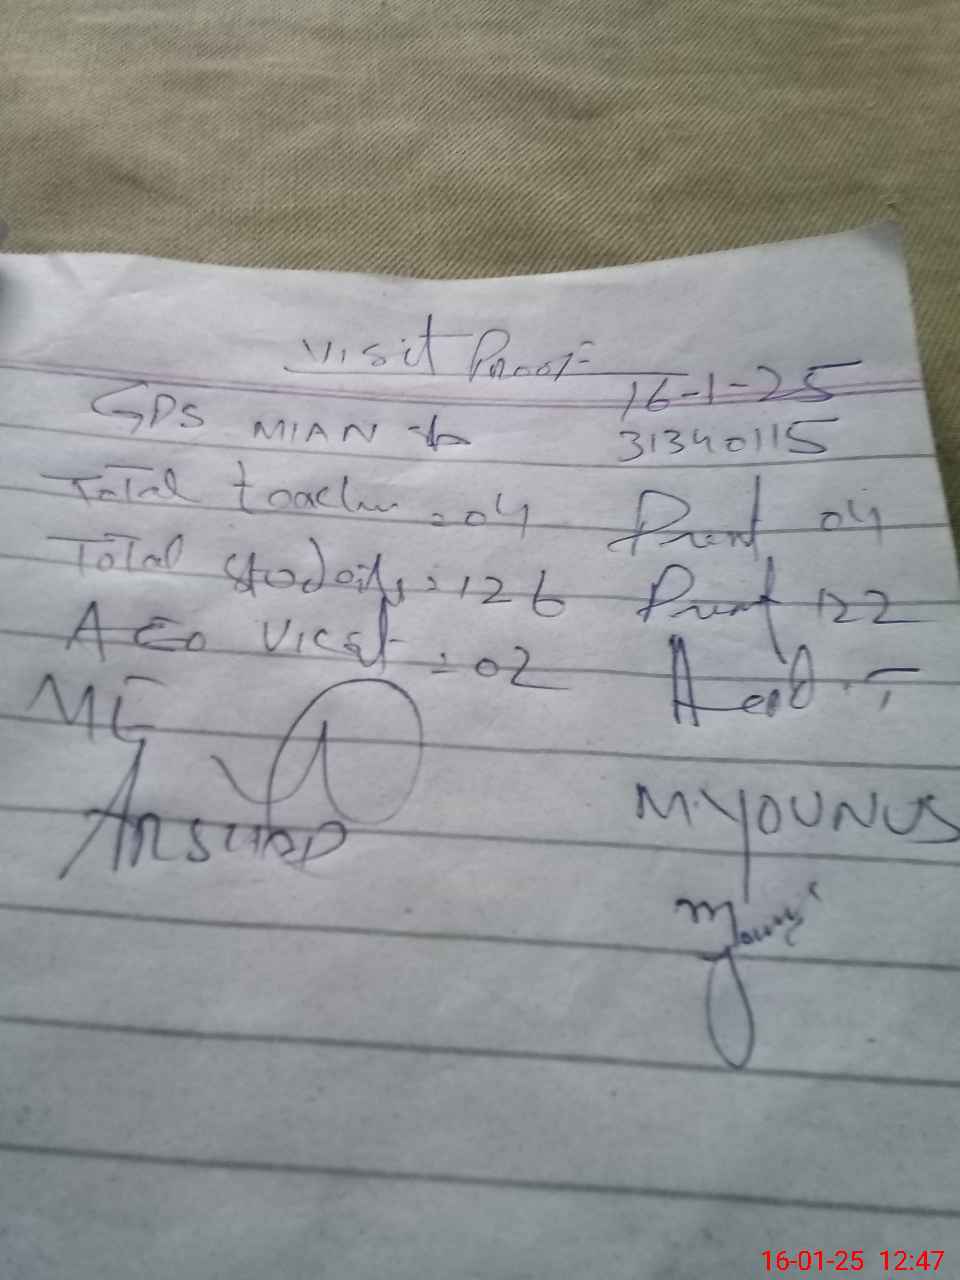 Visit Proof
16-1-25
GPS MIAN
31340115
Total teacher = 04 Prent 04
Total Stodoits = 126 Prent 122
AEO Visit = 02
ME
M.YOUNUS
16-01-25 12:47